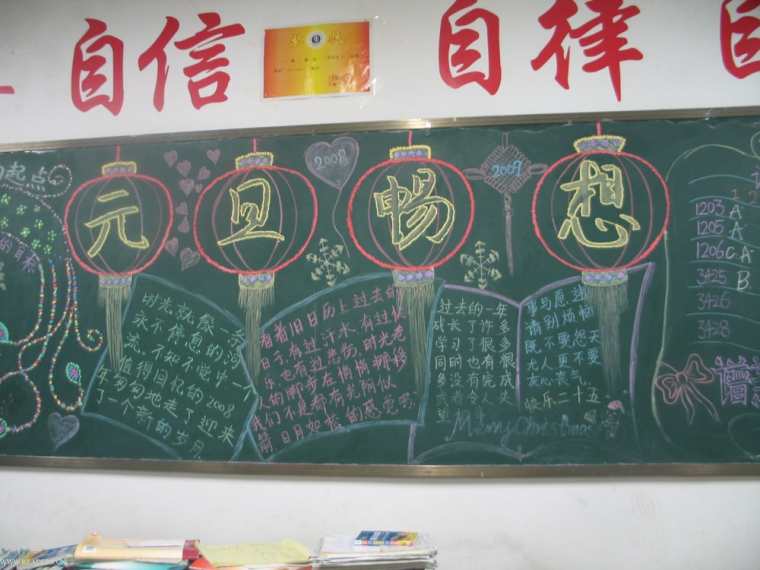 自信
自律
自
起点
2008
2009
元旦畅想
时光就像一条
永不停息的河
流,不知不觉中一个
值得回忆的2008
年匆匆地走了迎来
了一个新的岁月
看着旧日历上过去的
日子有过汗水,有过欢
乐,也有过悲伤,时光老
人的脚步在悄悄挪移
我们不是都有光阴似
箭日月如梭的感觉吗
过去的一年
成长了许多
学习了很多
同的也有很
多没有完成
事与愿违
请别烦恼
既不要怨天
尤人更不要
灰心丧气,
快乐二十五
Merry Christmas
1203 A
1205 A
1206 CA
3425 B
3426
3428